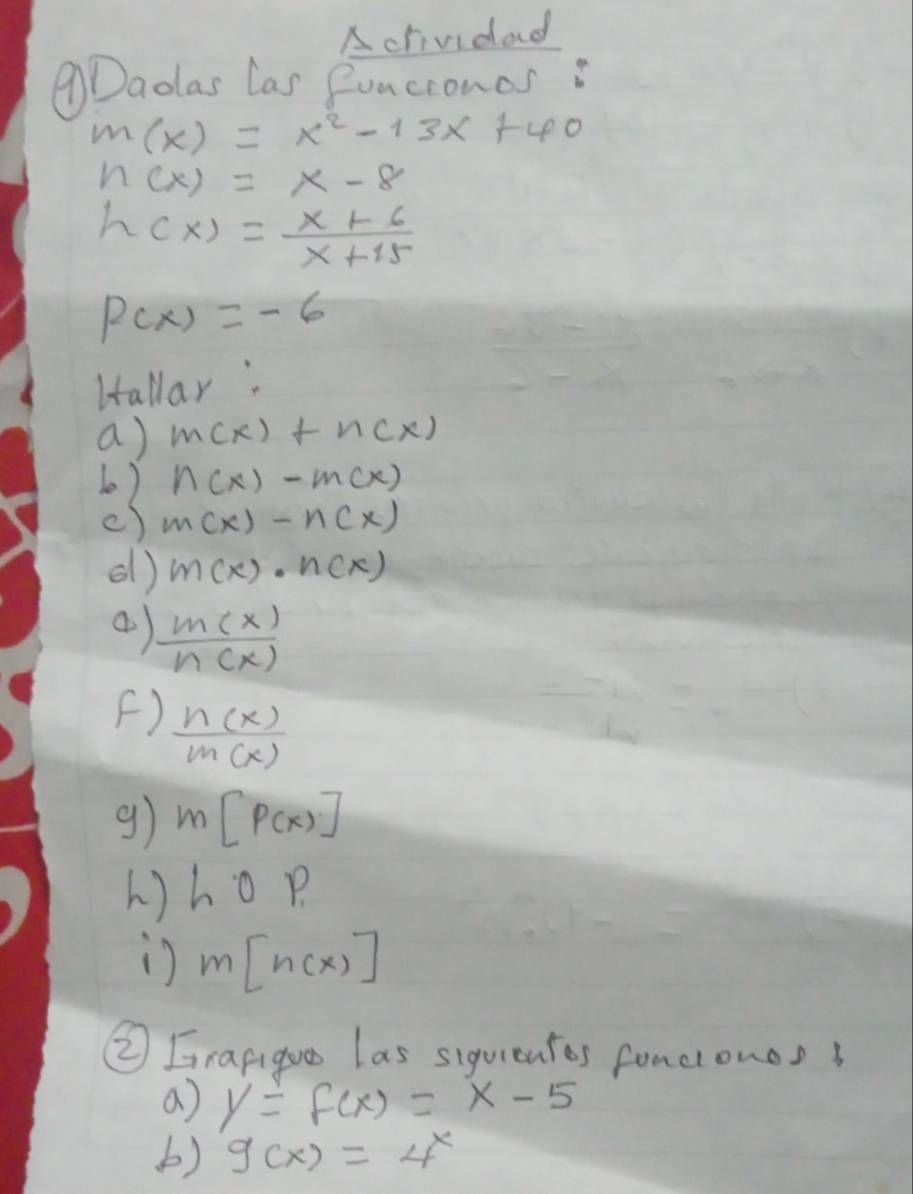 Actividad
① Dadas las funciones:
m(x) = x² - 13x + 40
n(x) = x - 8
h(x) = \frac{x + 6}{x + 15}
P(x) = - 6
Hallar:
a) m(x) + n(x)
b) n(x) - m(x)
c) m(x) - n(x)
d) m(x) . n(x)
e) \frac{m(x)}{n(x)}
F) \frac{n(x)}{m(x)}
g) m[P(x)]
h) h o P.
i) m[n(x)]
② Grafique las siguientes funciones:
a) y = f(x) = x - 5
b) g(x) = 4ˣ